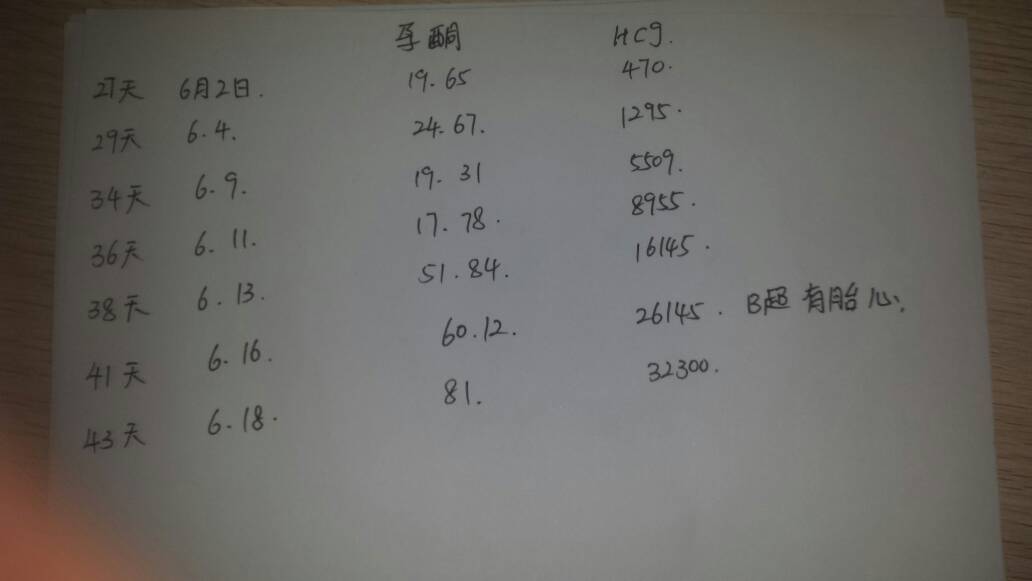 孕酮 HCg.
27天 6月2日. 19.65 470.
29天 6.4. 24.67. 1295.
34天 6.9. 19.31 5509.
36天 6.11. 17.78. 8955.
38天 6.13. 51.84. 16145.
41天 6.16. 60.12. 26145. B超 有胎心;
43天 6.18. 81. 32300.